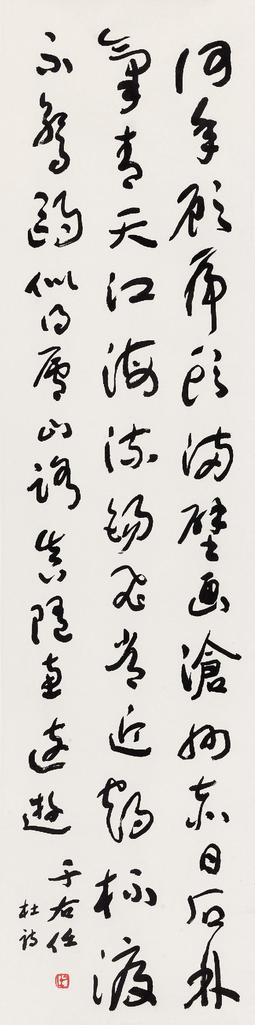 何年顧虎頭滿壁画滄州赤日石林
氣青天江海流錫飛常近鶴杯渡
不驚鷗似得廬山路真隨惠遠遊
于右任
杜詩